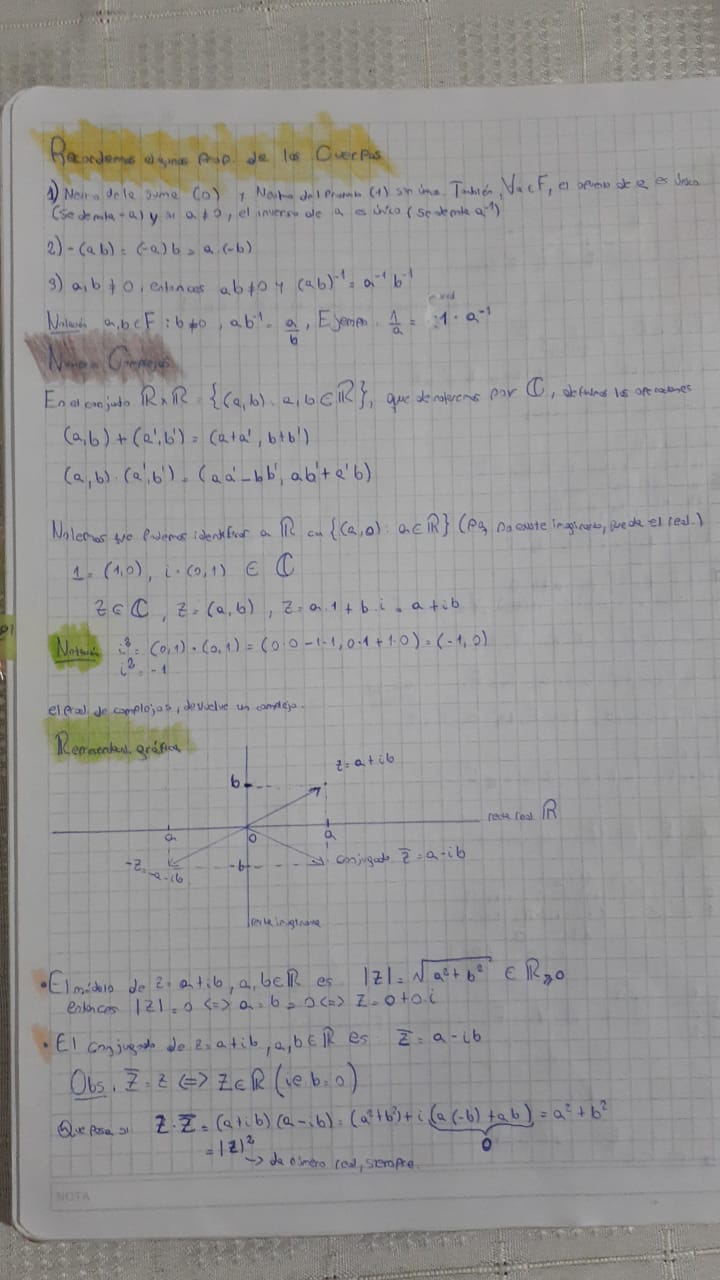 Recordemos algunas Prop. de los Cuerpos
1) Neutro de la suma (0) y Neutro del Producto (1) son únicos. También, ∀a∈F, el opuesto de a es único
(se denota -a) y si a ≠ 0, el inverso de a es único (se denota a⁻¹)
2) -(ab) = (-a)b = a.(-b)
3) a,b ≠ 0, entonces ab ≠ 0 y (ab)⁻¹ = a⁻¹ b⁻¹
Notación a,b∈F : b≠0, ab⁻¹ = a/b, Ejemplo. 1/a = 1 · a⁻¹
Números Complejos
En el conjunto ℝ×ℝ = {(a,b) : a,b∈ℝ}, que denotaremos por ℂ, definimos las operaciones
(a,b) + (a',b') = (a+a', b+b')
(a,b) · (a',b') = (aa'-bb', ab'+a'b)
Notemos que Podemos identificar a ℝ con {(a,0) : a∈ℝ} (no existe imaginario, queda el real.)
1 = (1,0), i = (0,1) ∈ ℂ
z∈ℂ, z = (a,b), z = a.1 + b.i = a+ib
Notación i² = (0,1)·(0,1) = (0·0-1·1, 0·1+1·0) = (-1,0)
i² = -1
el prod. de complejos, devuelve un complejo.
gráfica
z = a+ib
b
recta real ℝ
a
0
a
-z = -a-ib
-b
conjugado z̄ = a-ib
recta imaginaria
• El módulo de z = a+ib, a,b∈ℝ es |z| = √(a²+b²) ∈ ℝ≥0
entonces |z| = 0 <=> a = b = 0 <=> z = 0+0.i
• El conjugado de z = a+ib, a,b∈ℝ es z̄ = a-ib
Obs. z̄ = z <=> z∈ℝ (ie b=0)
Que pasa si z·z̄ = (a+ib)(a-ib) = (a²+b²)+i(a(-b)+ab) = a²+b²
0
= |z|²
→ da número real, siempre.
NOTA